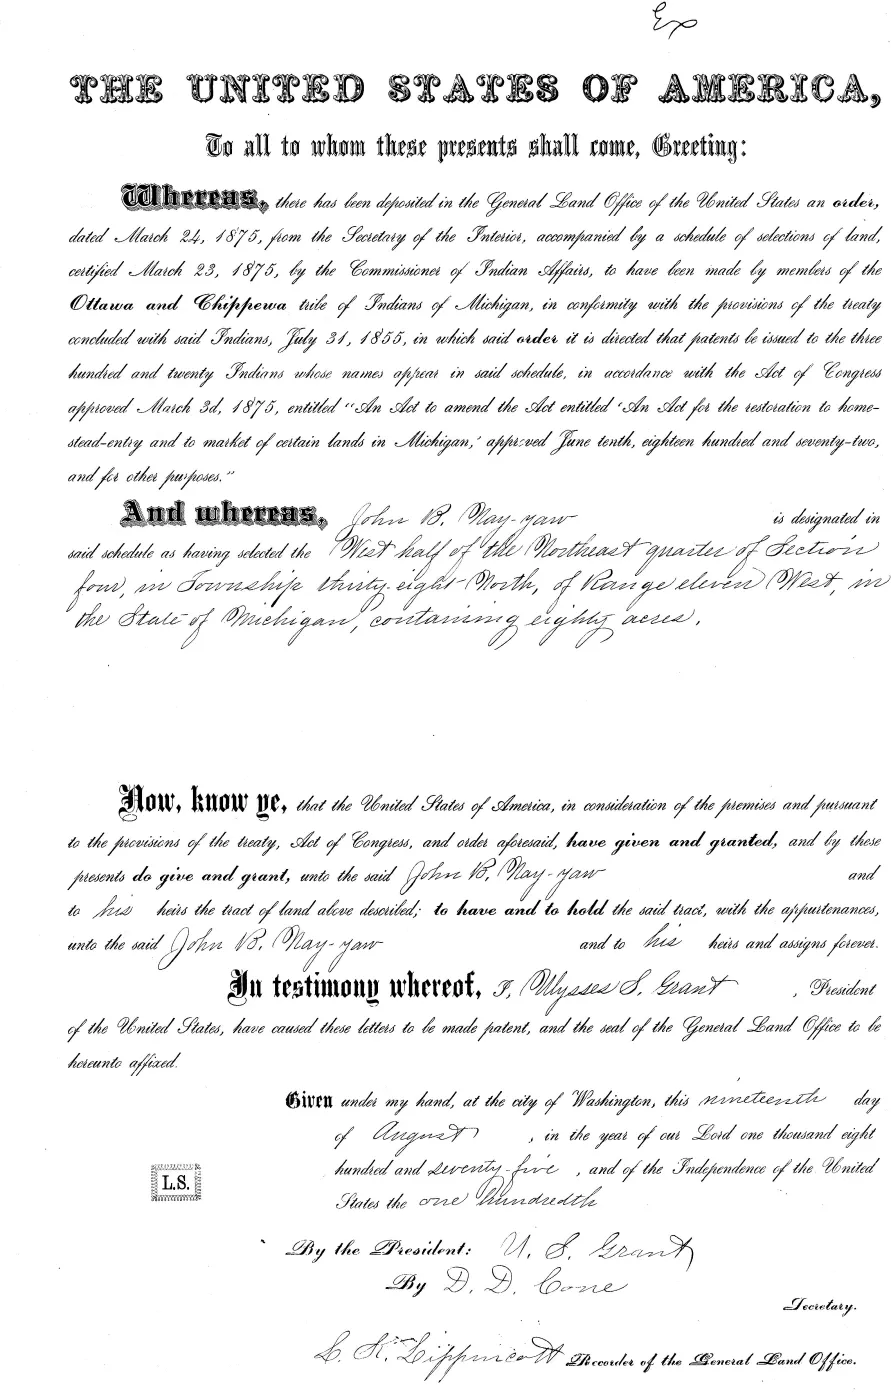 Ex
THE UNITED STATES OF AMERICA,
To all to whom these presents shall come, Greeting:
Whereas, there has been deposited in the General Land Office of the United States an order,
dated March 24, 1875, from the Secretary of the Interior, accompanied by a schedule of selections of land,
certified March 23, 1875, by the Commissioner of Indian Affairs, to have been made by members of the
Ottawa and Chippewa tribe of Indians of Michigan, in conformity with the provisions of the treaty
concluded with said Indians, July 31, 1855, in which said order it is directed that patents be issued to the three
hundred and twenty Indians whose names appear in said schedule, in accordance with the Act of Congress
approved March 3d, 1875, entitled "An Act to amend the Act entitled 'An Act for the restoration to home-
stead-entry and to market of certain lands in Michigan,' approved June tenth, eighteen hundred and seventy-two,
and for other purposes."
And whereas, John B. Nay-yaw is designated in
said schedule as having selected the West half of the Northeast quarter of Section
four, in Township thirty-eight North, of Range eleven West, in
the State of Michigan, containing eighty acres.
Now, know ye, that the United States of America, in consideration of the premises and pursuant
to the provisions of the treaty, Act of Congress, and order aforesaid, have given and granted, and by these
presents do give and grant, unto the said John B. Nay-yaw and
to his heirs the tract of land above described; to have and to hold the said tract, with the appurtenances,
unto the said John B. Nay-yaw and to his heirs and assigns forever.
In testimony whereof, I, Ulysses S. Grant, President
of the United States, have caused these letters to be made patent, and the seal of the General Land Office to be
hereunto affixed.
Given under my hand, at the city of Washington, this nineteenth day
of August, in the year of our Lord one thousand eight
hundred and seventy-five, and of the Independence of the United
L.S.
States the one hundredth
By the President: U. S. Grant
By D. D. Cone
Secretary.
L. K. Lippincott Recorder of the General Land Office.